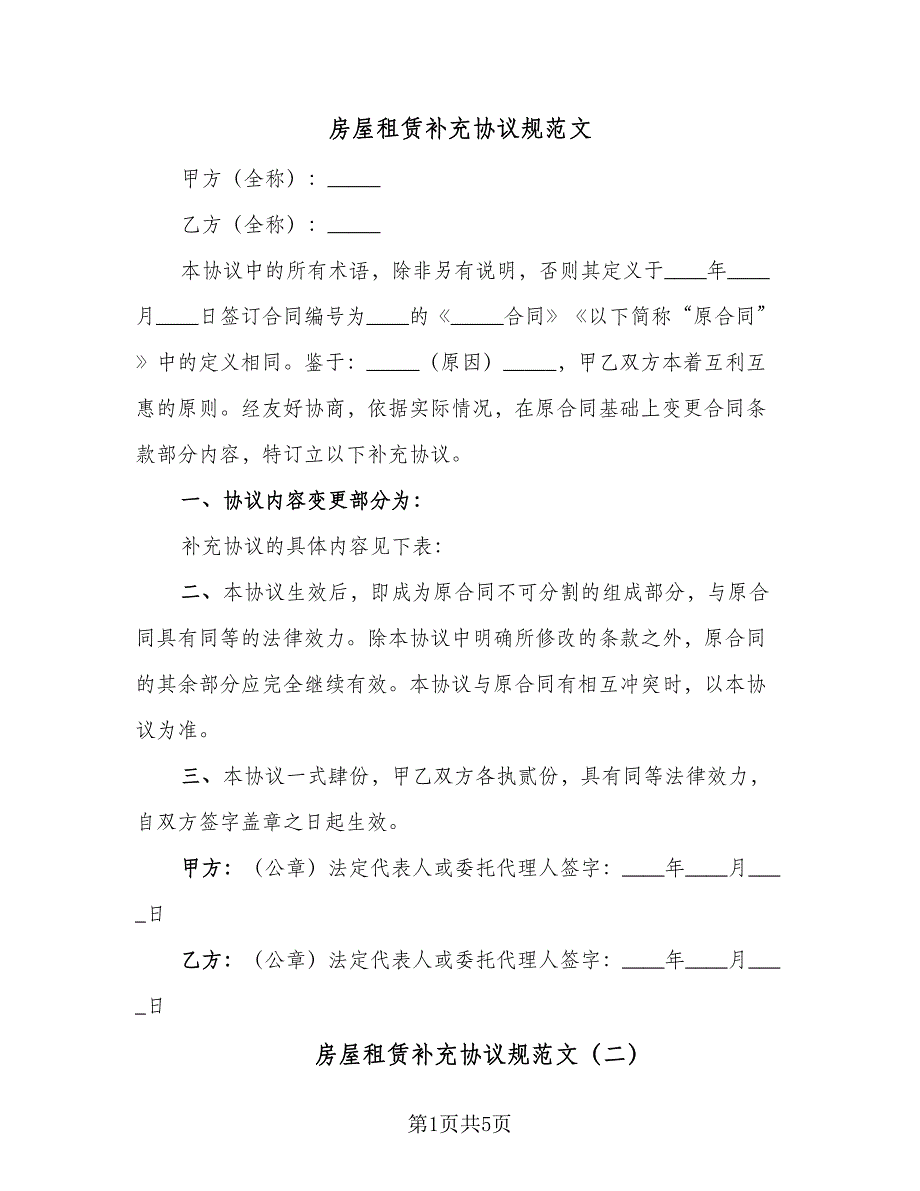 房屋租赁补充协议规范文
甲方（全称）：_____
乙方（全称）：_____
本协议中的所有术语，除非另有说明，否则其定义于____年____
月____日签订合同编号为____的《_____合同》《以下简称“原合同”
》中的定义相同。鉴于：_____（原因）_____，甲乙双方本着互利互
惠的原则。经友好协商，依据实际情况，在原合同基础上变更合同条
款部分内容，特订立以下补充协议。
一、协议内容变更部分为：
补充协议的具体内容见下表：
二、本协议生效后，即成为原合同不可分割的组成部分，与原合
同具有同等的法律效力。除本协议中明确所修改的条款之外，原合同
的其余部分应完全继续有效。本协议与原合同有相互冲突时，以本协
议为准。
三、本协议一式肆份，甲乙双方各执贰份，具有同等法律效力，
自双方签字盖章之日起生效。
甲方：（公章）法定代表人或委托代理人签字：____年____月___
_日
乙方：（公章）法定代表人或委托代理人签字：____年____月___
_日
房屋租赁补充协议规范文（二）
第1页共5页